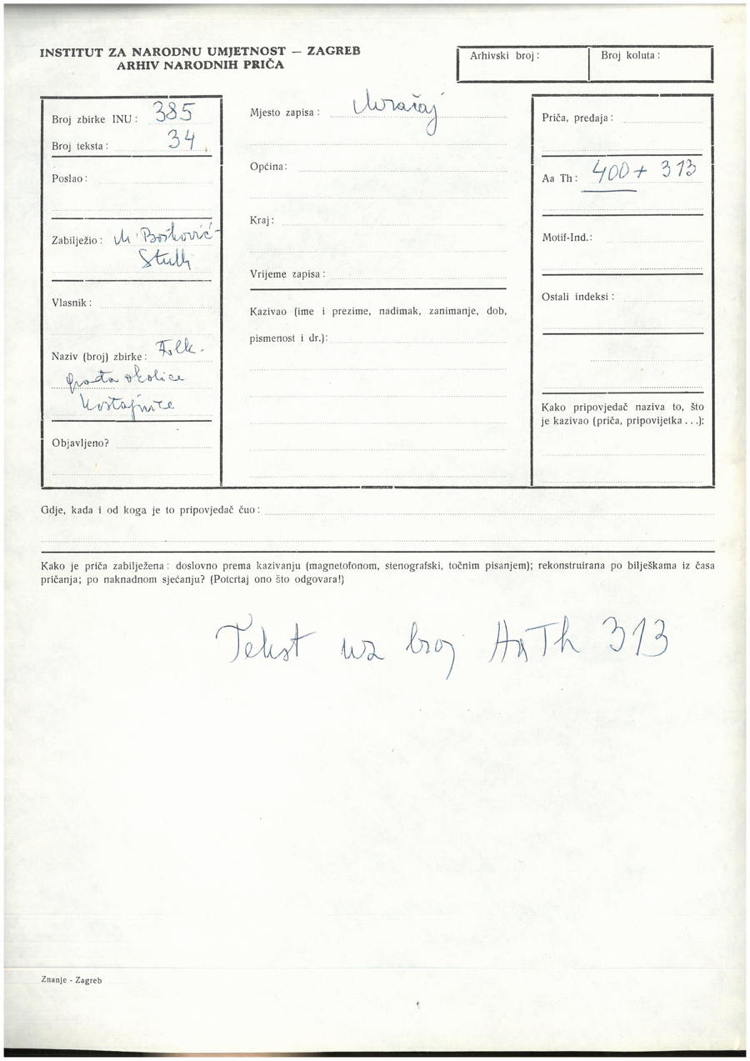 INSTITUT ZA NARODNU UMJETNOST — ZAGREB
ARHIV NARODNIH PRIČA
Arhivski broj :
Broj koluta :
Broj zbirke INU : 385
Broj teksta : 34
Poslao :
Zabilježio : M. Bošković-
Stulli
Vlasnik :
Naziv (broj) zbirke : Folk.
građa okolice
Kostajnice
Objavljeno?
Mjesto zapisa : Mračaj
Općina :
Kraj :
Vrijeme zapisa :
Kazivao (ime i prezime, nadimak, zanimanje, dob,
pismenost i dr.) :
Priča, predaja :
Aa Th : 400 + 313
Motif-Ind. :
Ostali indeksi :
Kako pripovjedač naziva to, što
je kazivao (priča, pripovijetka . . .) :
Gdje, kada i od koga je to pripovjedač čuo :
Kako je priča zabilježena : doslovno prema kazivanju (magnetofonom, stenografski, točnim pisanjem); rekonstruirana po bilješkama iz časa
pričanja; po naknadnom sjećanju? (Potcrtaj ono što odgovara!)
Tekst uz broj AaTh 313
Znanje - Zagreb